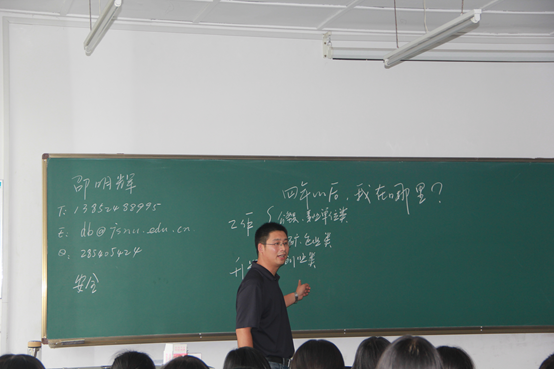 邵明辉
T: 13852488995
E: db@jsnu.edu.cn
Q: 285405424
安全
四年以后，我在哪里？
工作
公务、事业单位类
企业类
创业类
升